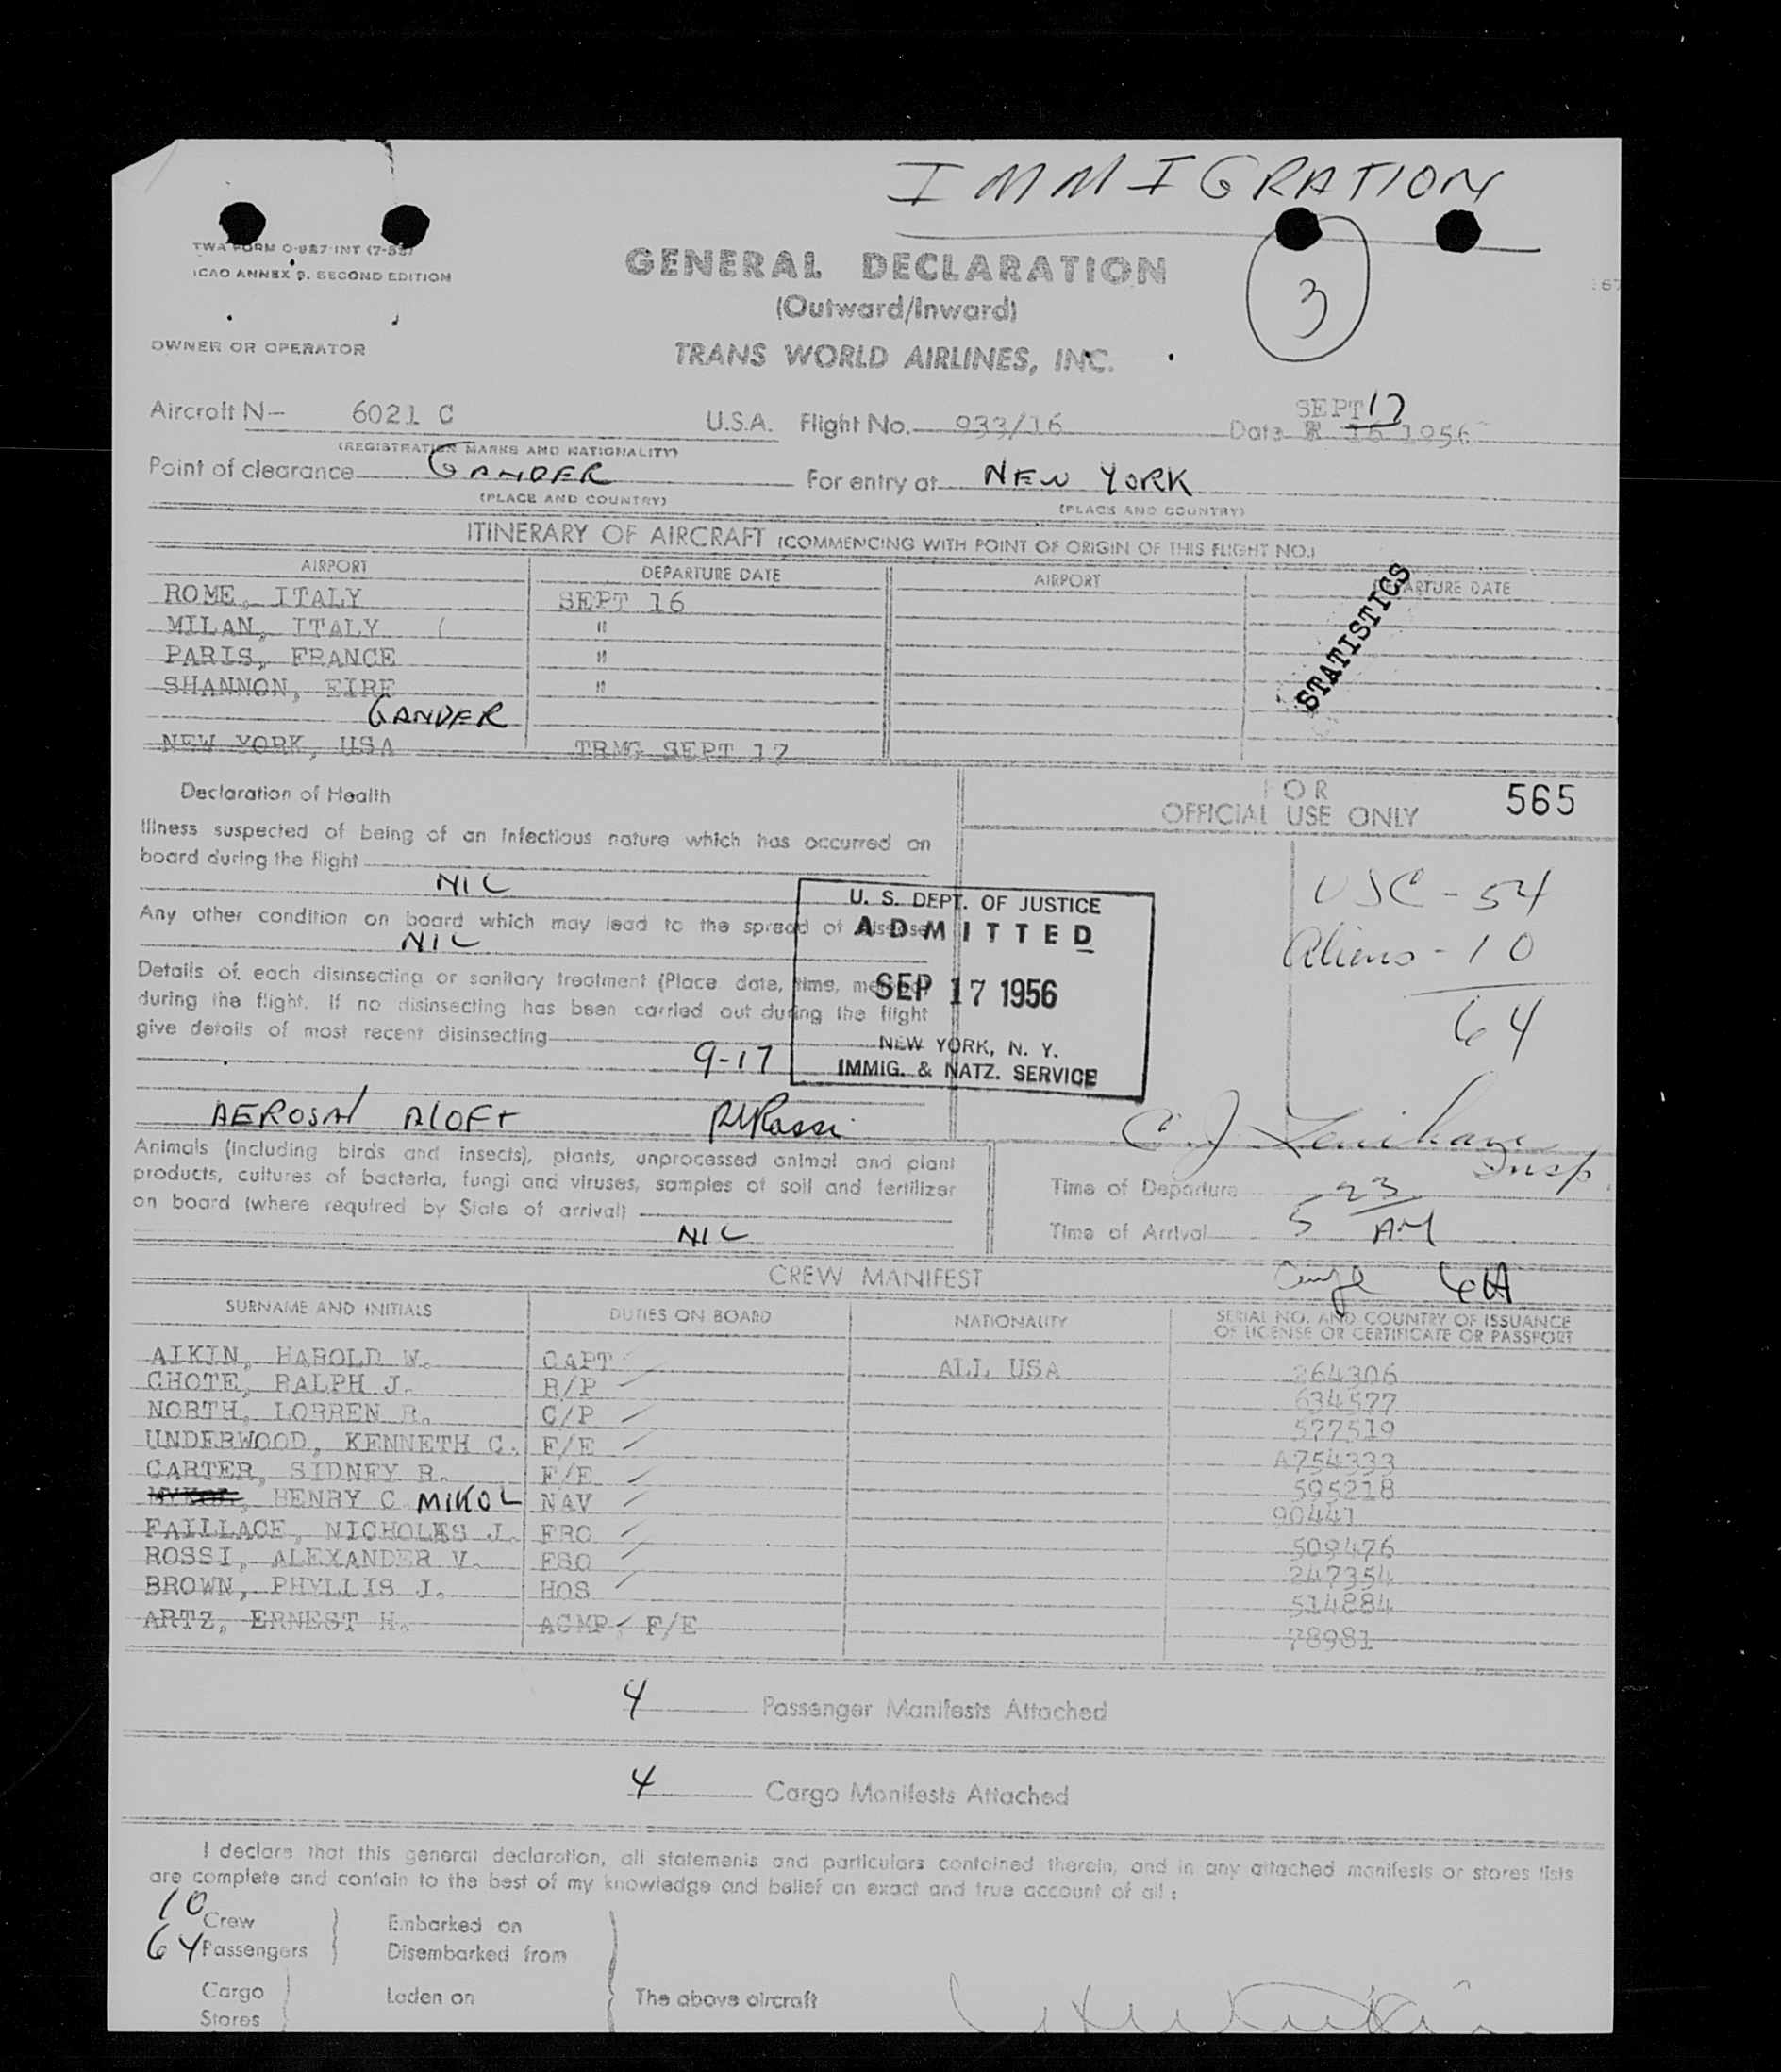 IMMIGRATION
TWA FORM O-987-INT (7-55)
ICAO ANNEX 9. SECOND EDITION
GENERAL DECLARATION
(Outward/Inward)
3
OWNER OR OPERATOR
TRANS WORLD AIRLINES, INC.
Aircraft N- 6021 C U.S.A. Flight No. 933/16 Date SEPT 17 16 1956
(REGISTRATION MARKS AND NATIONALITY)
Point of clearance GANDER For entry at NEW YORK
(PLACE AND COUNTRY) (PLACE AND COUNTRY)
ITINERARY OF AIRCRAFT (COMMENCING WITH POINT OF ORIGIN OF THIS FLIGHT NO.)
AIRPORT DEPARTURE DATE AIRPORT DEPARTURE DATE
ROME, ITALY SEPT 16
MILAN, ITALY "
PARIS, FRANCE "
SHANNON, EIRE "
GANDER
NEW YORK, USA TRMG SEPT 17
STATISTICS
Declaration of Health
FOR
OFFICIAL USE ONLY 565
Illness suspected of being of an infectious nature which has occurred on
board during the flight
NIL
Any other condition on board which may lead to the spread of disease
NIL
Details of each disinsecting or sanitary treatment (Place date, time, method)
during the flight. If no disinsecting has been carried out during the flight
give details of most recent disinsecting
9-17
AEROSAL ALOFT RVRossi
U. S. DEPT. OF JUSTICE
ADMITTED
SEP 17 1956
NEW YORK, N. Y.
IMMIG. & NATZ. SERVICE
USC - 54
Aliens - 10
64
C. J. Lenihan
Insp.
Animals (including birds and insects), plants, unprocessed animal and plant
products, cultures of bacteria, fungi and viruses, samples of soil and fertilizer
on board (where required by State of arrival)
NIL
Time of Departure
Time of Arrival 5 23 AM
CREW MANIFEST
SURNAME AND INITIALS DUTIES ON BOARD NATIONALITY SERIAL NO. AND COUNTRY OF ISSUANCE
OF LICENSE OR CERTIFICATE OR PASSPORT
AIKIN, HAROLD W. CAPT ALL USA 264306
CHOTE, RALPH J. R/P 634577
NORTH, LORREN R. C/P 577519
UNDERWOOD, KENNETH C. F/E A754333
CARTER, SIDNEY R. F/E 595218
HENRY C MIKOL NAV 90441
FAILLACE, NICHOLAS J. FRO 509476
ROSSI, ALEXANDER V. FSO 247354
BROWN, PHYLLIS J. HOS 514884
ARTZ, ERNEST H. ACMP F/E 78981
4 Passenger Manifests Attached
4 Cargo Manifests Attached
I declare that this general declaration, all statements and particulars contained therein, and in any attached manifests or stores lists
are complete and contain to the best of my knowledge and belief an exact and true account of all :
10 Crew Embarked on
64 Passengers Disembarked from
Cargo Laden on The above aircraft
Stores